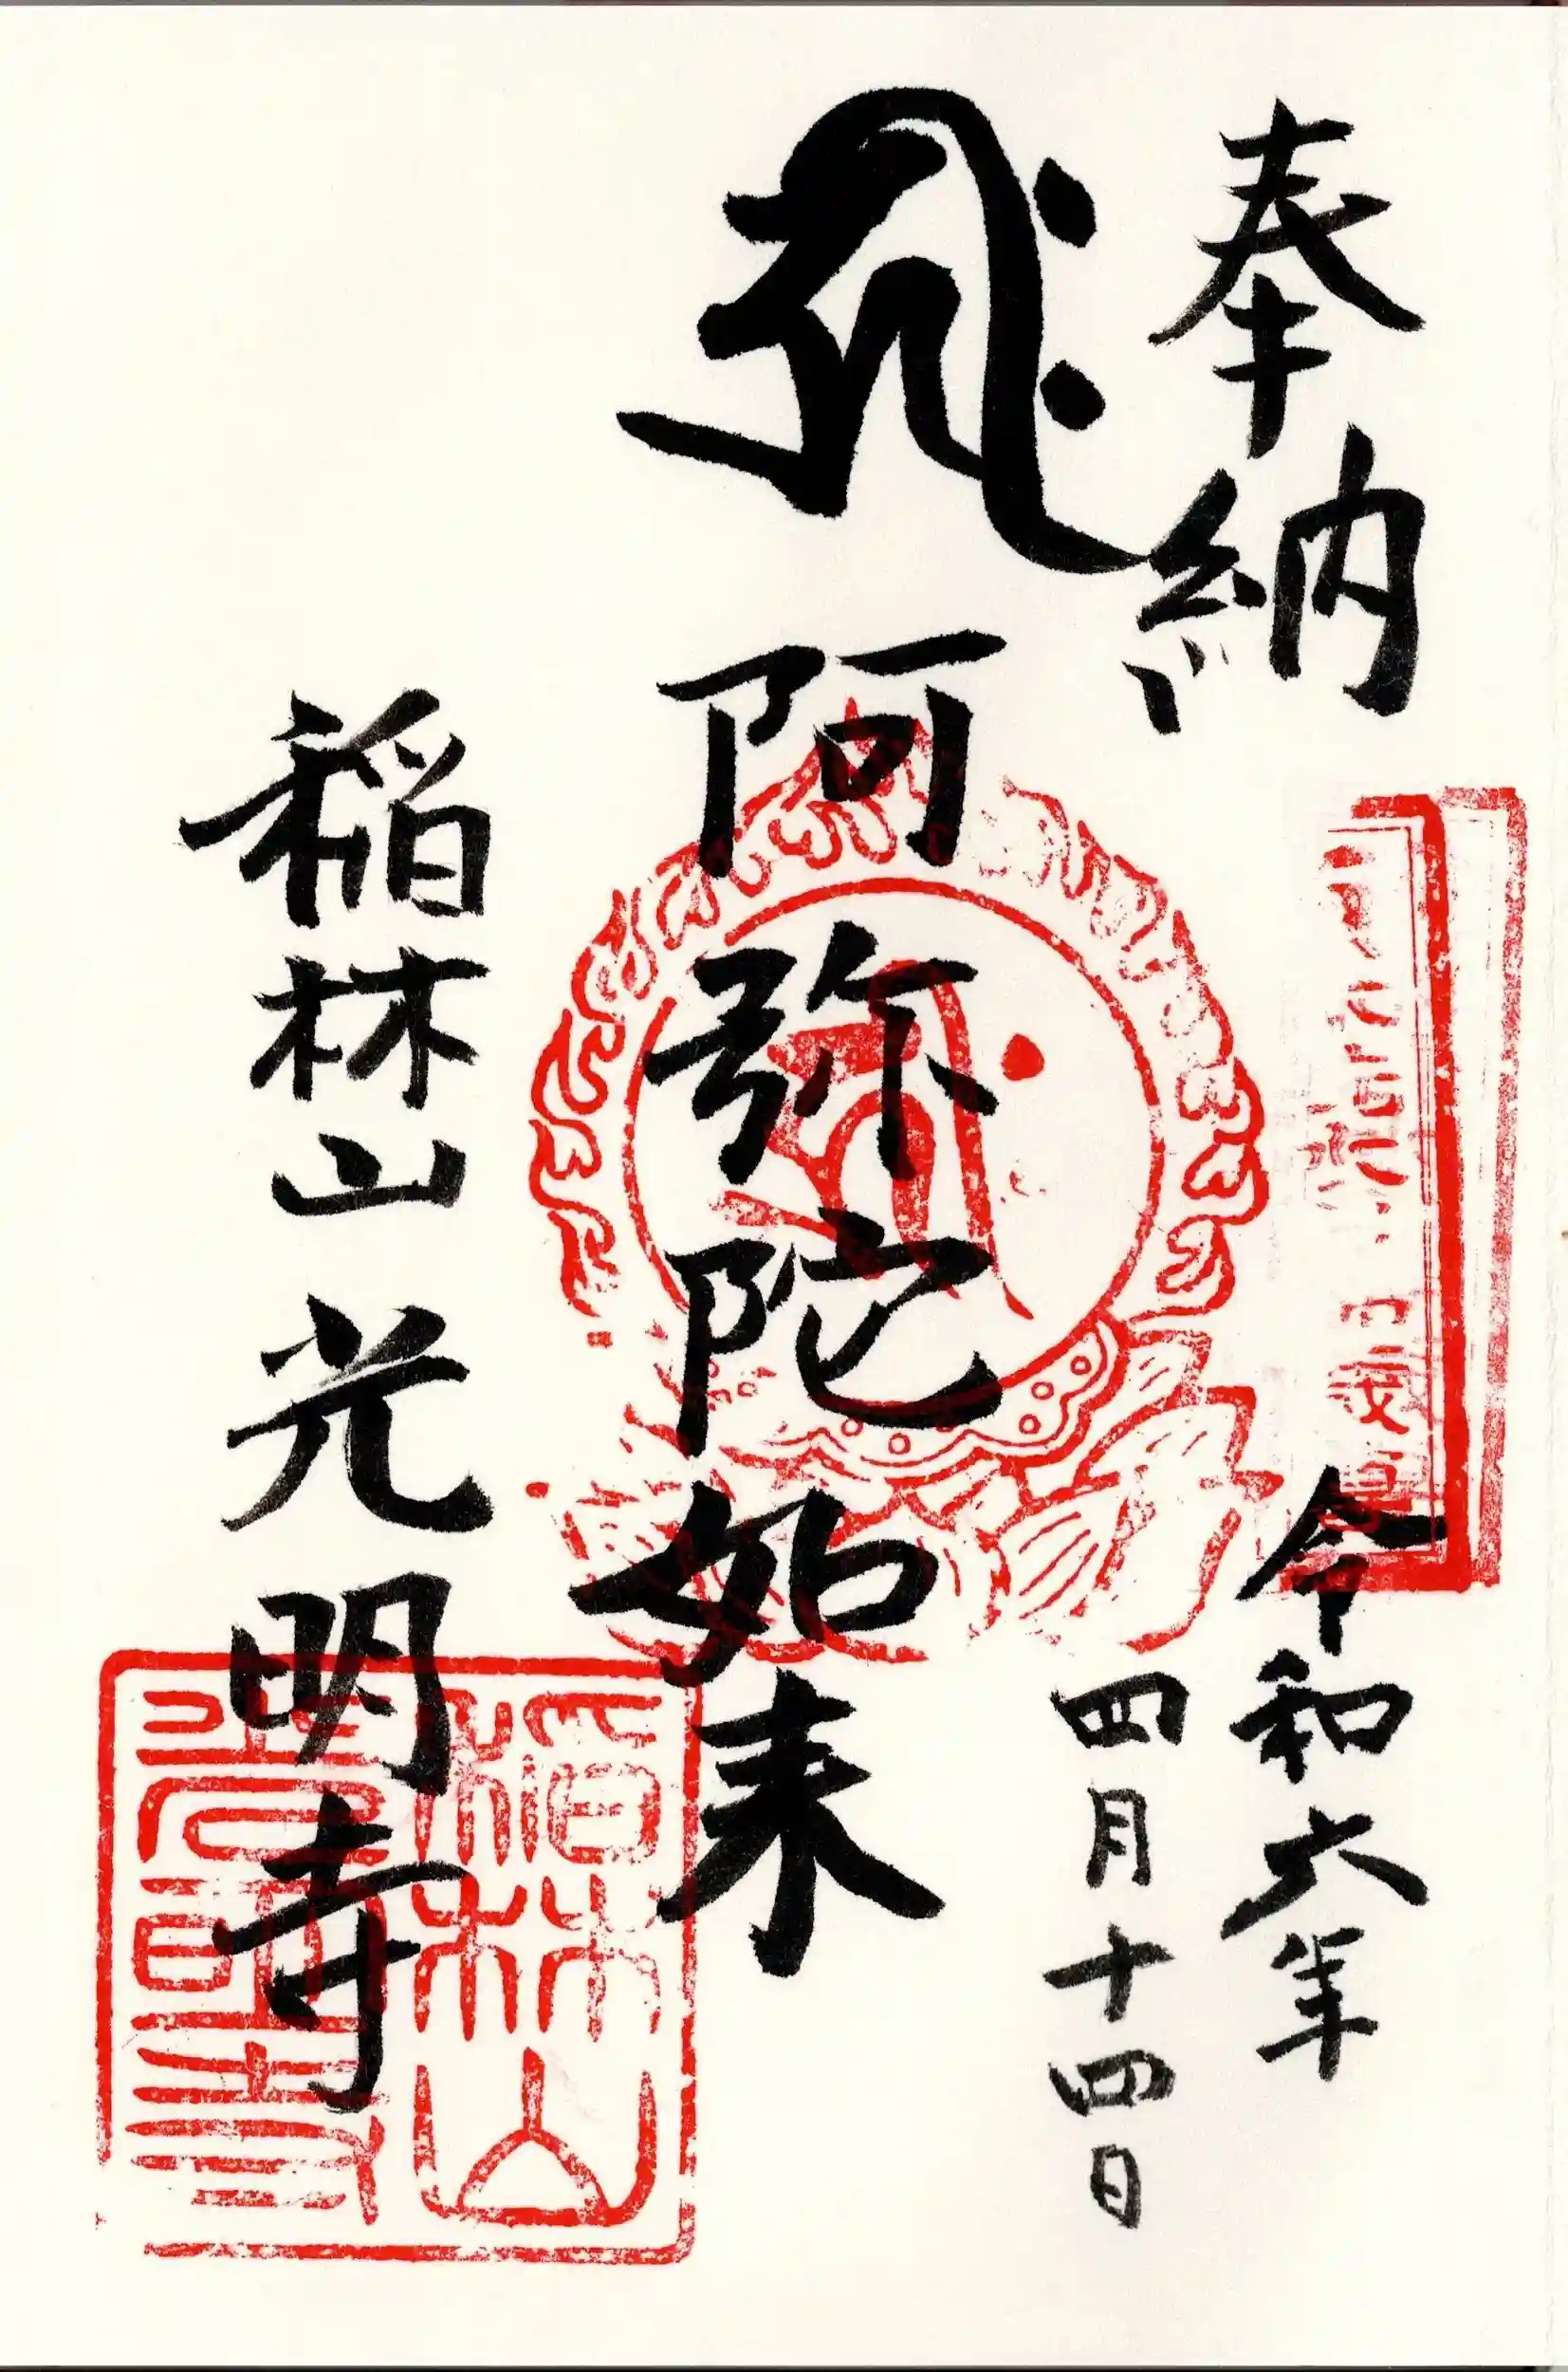 奉納
令和六年
四月十四日
𑖮𑖿𑖨𑖱𑖾
阿弥陀如来
稲林山光明寺
稲林山
光明寺